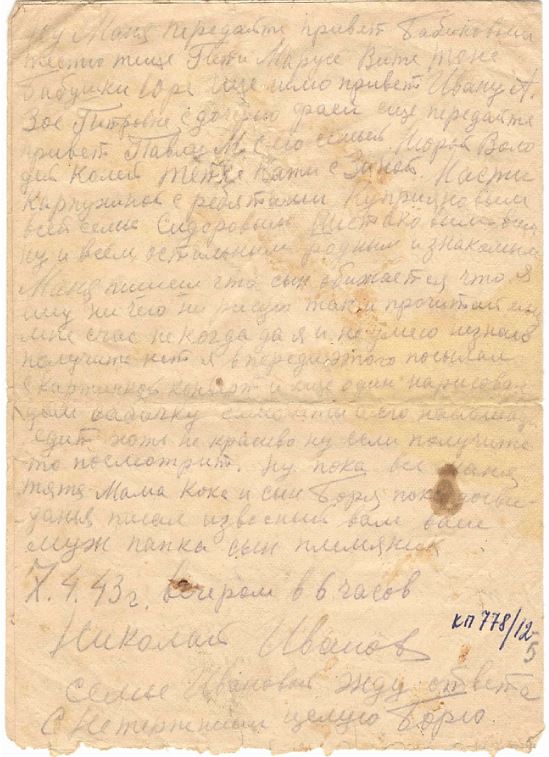 ну Маня передайте привет Бабиковым
тестю теще Пити Марусе Вите Жене
бабушки Юре еще шлю привет Ивану А.
Зое Питровне с дочерью фаей еще передайте
привет Павлу М. с его семьей Шорой Воло
дей Колей тетке Кати с Зиной. Насти
Карпухиной с ребятами Куприяновым
всей семье Сидоровым Шистаковым
ну и всем остальным родным и знакомым
Маня пишеш что сын обижается что я
ему ни чего ни пишу так и прочитай ему
мне счас не когда да я и не умею незнаю
получите нет я в переди этого посылал
с картинкой конверт и еще один нарисова
дом бабочку
едит хотя не красиво ну если получите
то посмотрит. Ну пока все Маня
тятя Мама Кока и сын Боря пока досви-
данья писал извесный вам ваш
муж папка сын племяник
7.4.43 г. вечером в 6 часов
Николай Иванов
семье Ивановой жду ответа
с нетерпеним целую Борю.
КП 778/12-
5